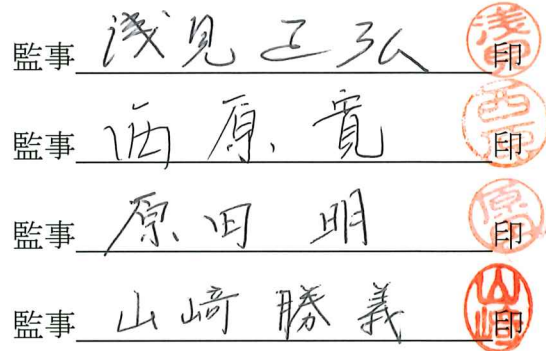 監事 浅見正弘 印
監事 西原寛 印
監事 原田明 印
監事 山﨑勝義 印